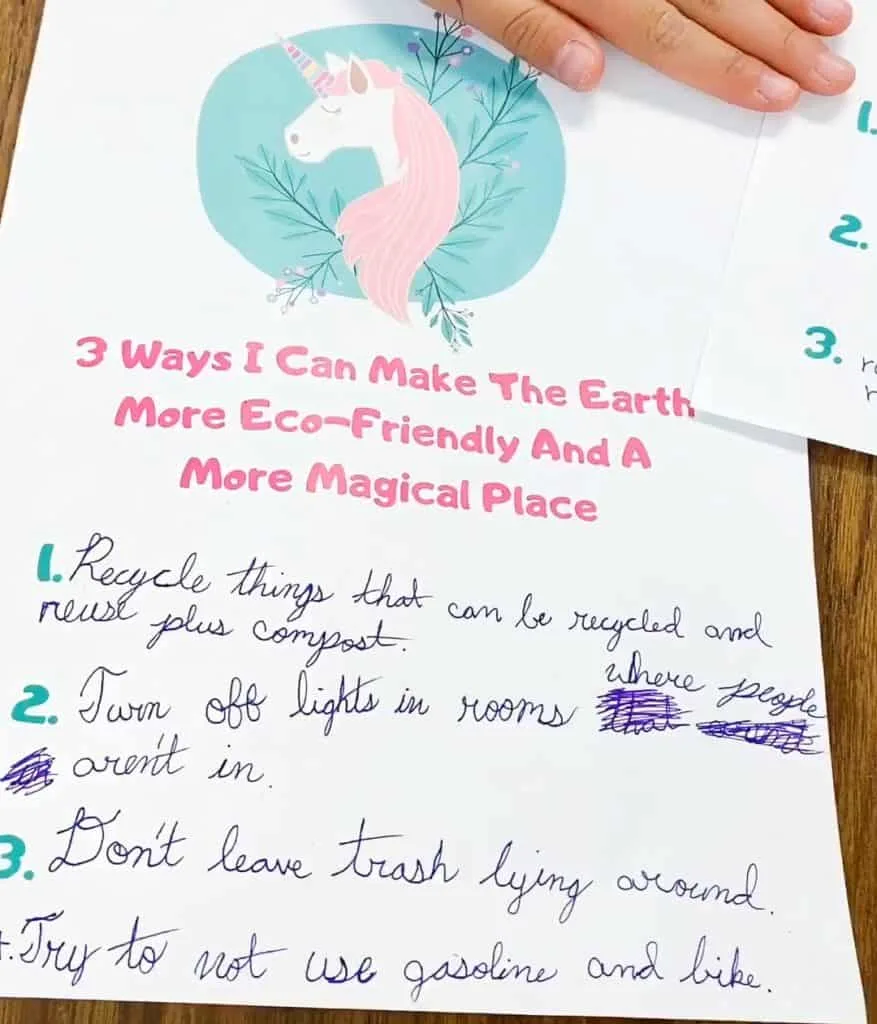 3 Ways I Can Make The Earth
More Eco-Friendly And A
More Magical Place
1. Recycle things that can be recycled and
reuse plus compost.
2. Turn off lights in rooms where people
aren't in.
3. Don't leave trash lying around.
4. Try to not use gasoline and bike.
1.
2.
3.